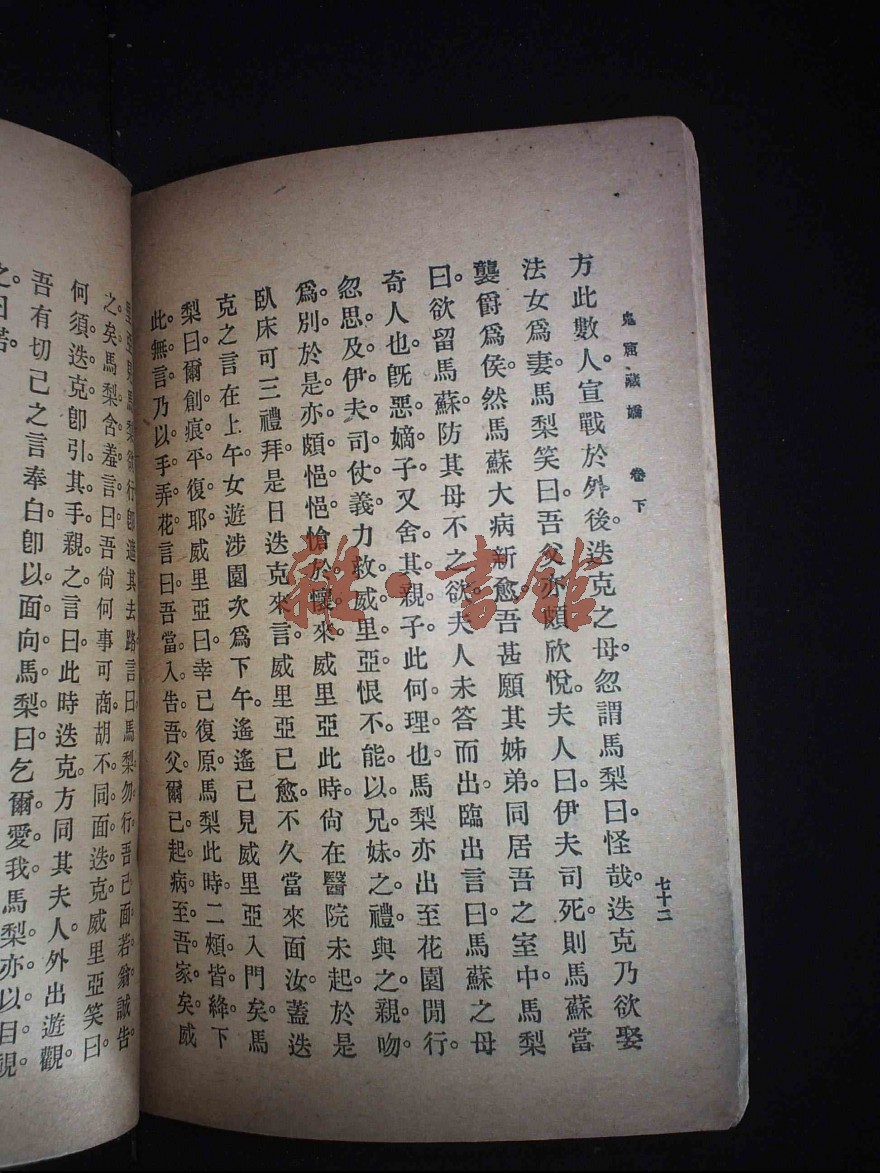 鬼窟藏嬌 卷下
七十二
方此數人宣戰於外後。迭克之母。忽謂馬梨曰。怪哉。迭克乃欲娶
法女爲妻。馬梨笑曰。吾父亦頗欣悅。夫人曰。伊夫司死。則馬蘇當
襲爵爲侯。然馬蘇大病新愈。吾甚願其姊弟。同居吾之室中。馬梨
曰。欲留馬蘇。防其母不之欲。夫人未答而出。臨出言曰。馬蘇之母
奇人也。旣惡嫡子。又舍其親子。此何理也。馬梨亦出至花園閒行。
忽思及伊夫司仗義。力救威里亞。恨不能以兄妹之禮。與之親吻
爲別。於是亦頗悒悒愴於懷。來威里亞此時。尙在醫院未起。於是
臥床可三禮拜。是日迭克來言。威里亞已愈。不久當來面汝。蓋迭
克之言在上午。女遊涉園次爲下午。遙遙已見威里亞入門矣。馬
梨曰。爾創痕平復耶。威里亞曰。幸已復原。馬梨此時二頰皆絳。下
此無言。乃以手弄花。言曰。吾當入告吾父。爾已起病至吾家矣。威
里亞見馬梨欲行。卽遮其去路。言曰。馬梨勿行。吾已面若翁。誠告
之矣。馬梨含羞言曰。吾尙何事可商。胡不同面迭克。威里亞笑曰。
何須迭克。卽引其手親之。言曰。此時迭克。方同其夫人。外出遊觀。
吾有切己之言奉白。卽以面向馬梨曰。乞爾愛我。馬梨亦以目視
之曰。若。
雜·書館